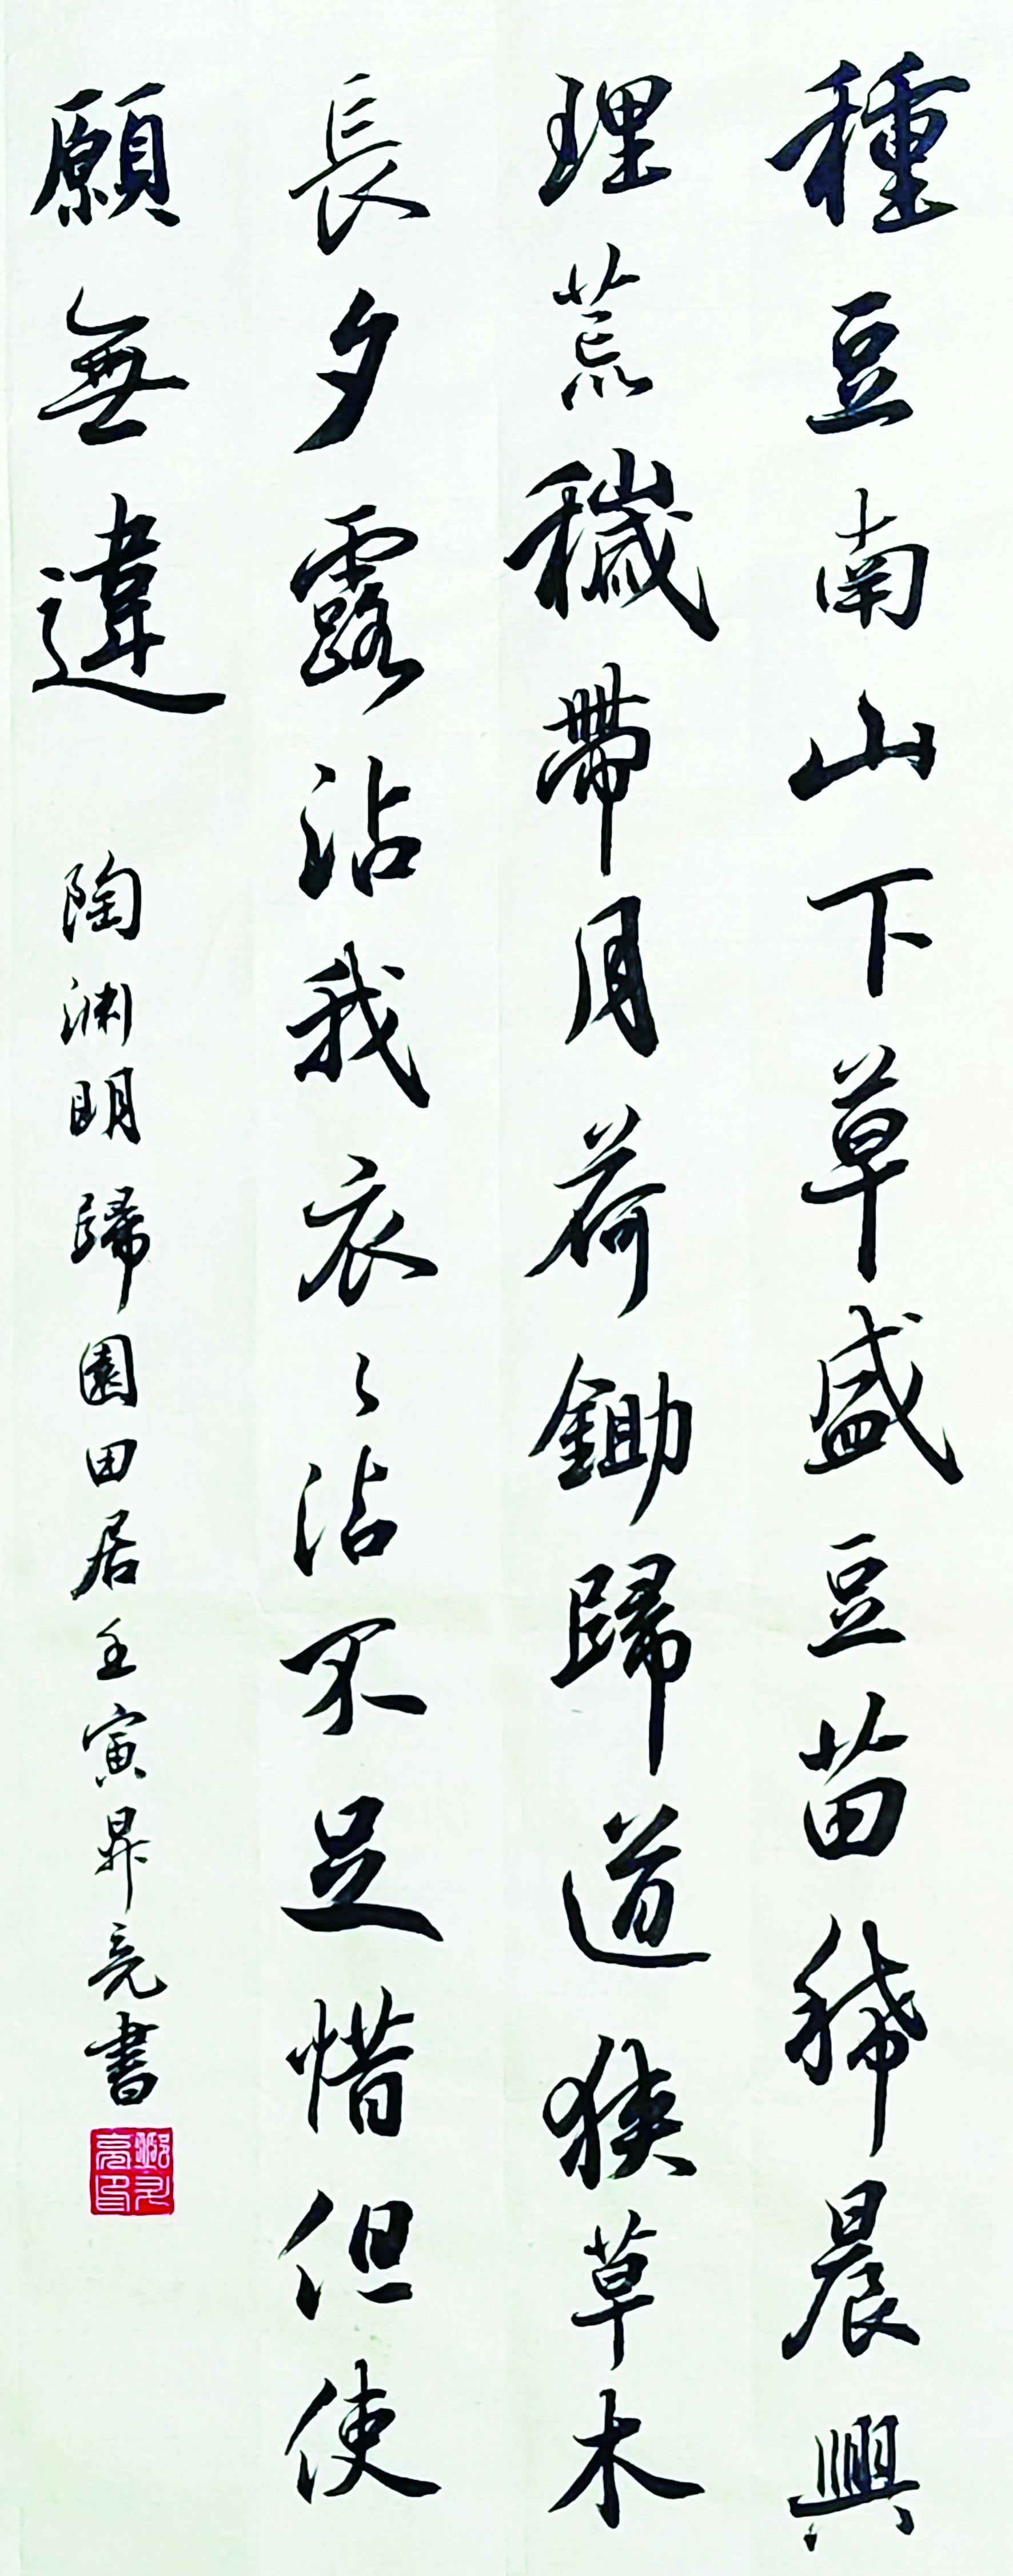 種豆南山下草盛豆苗稀晨興
理荒穢帶月荷鋤歸道狹草木
長夕露沾我衣〻沾不足惜但使
願無違
陶渊明歸園田居壬寅昇亮書